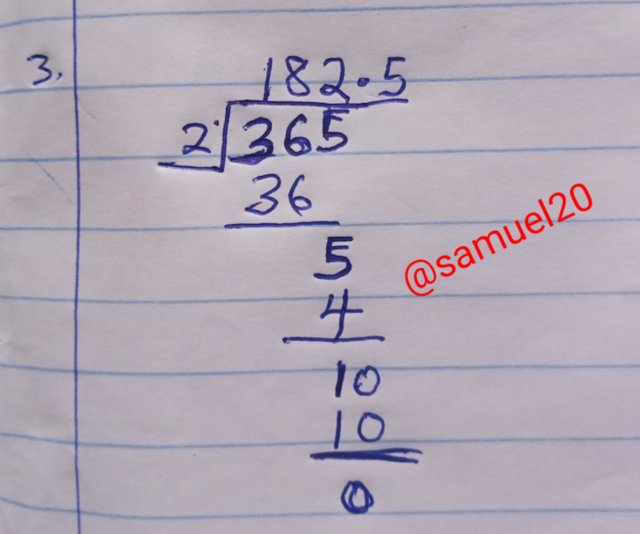 3.
182.5
2 365
36
5
@samuel20
4
10
10
0